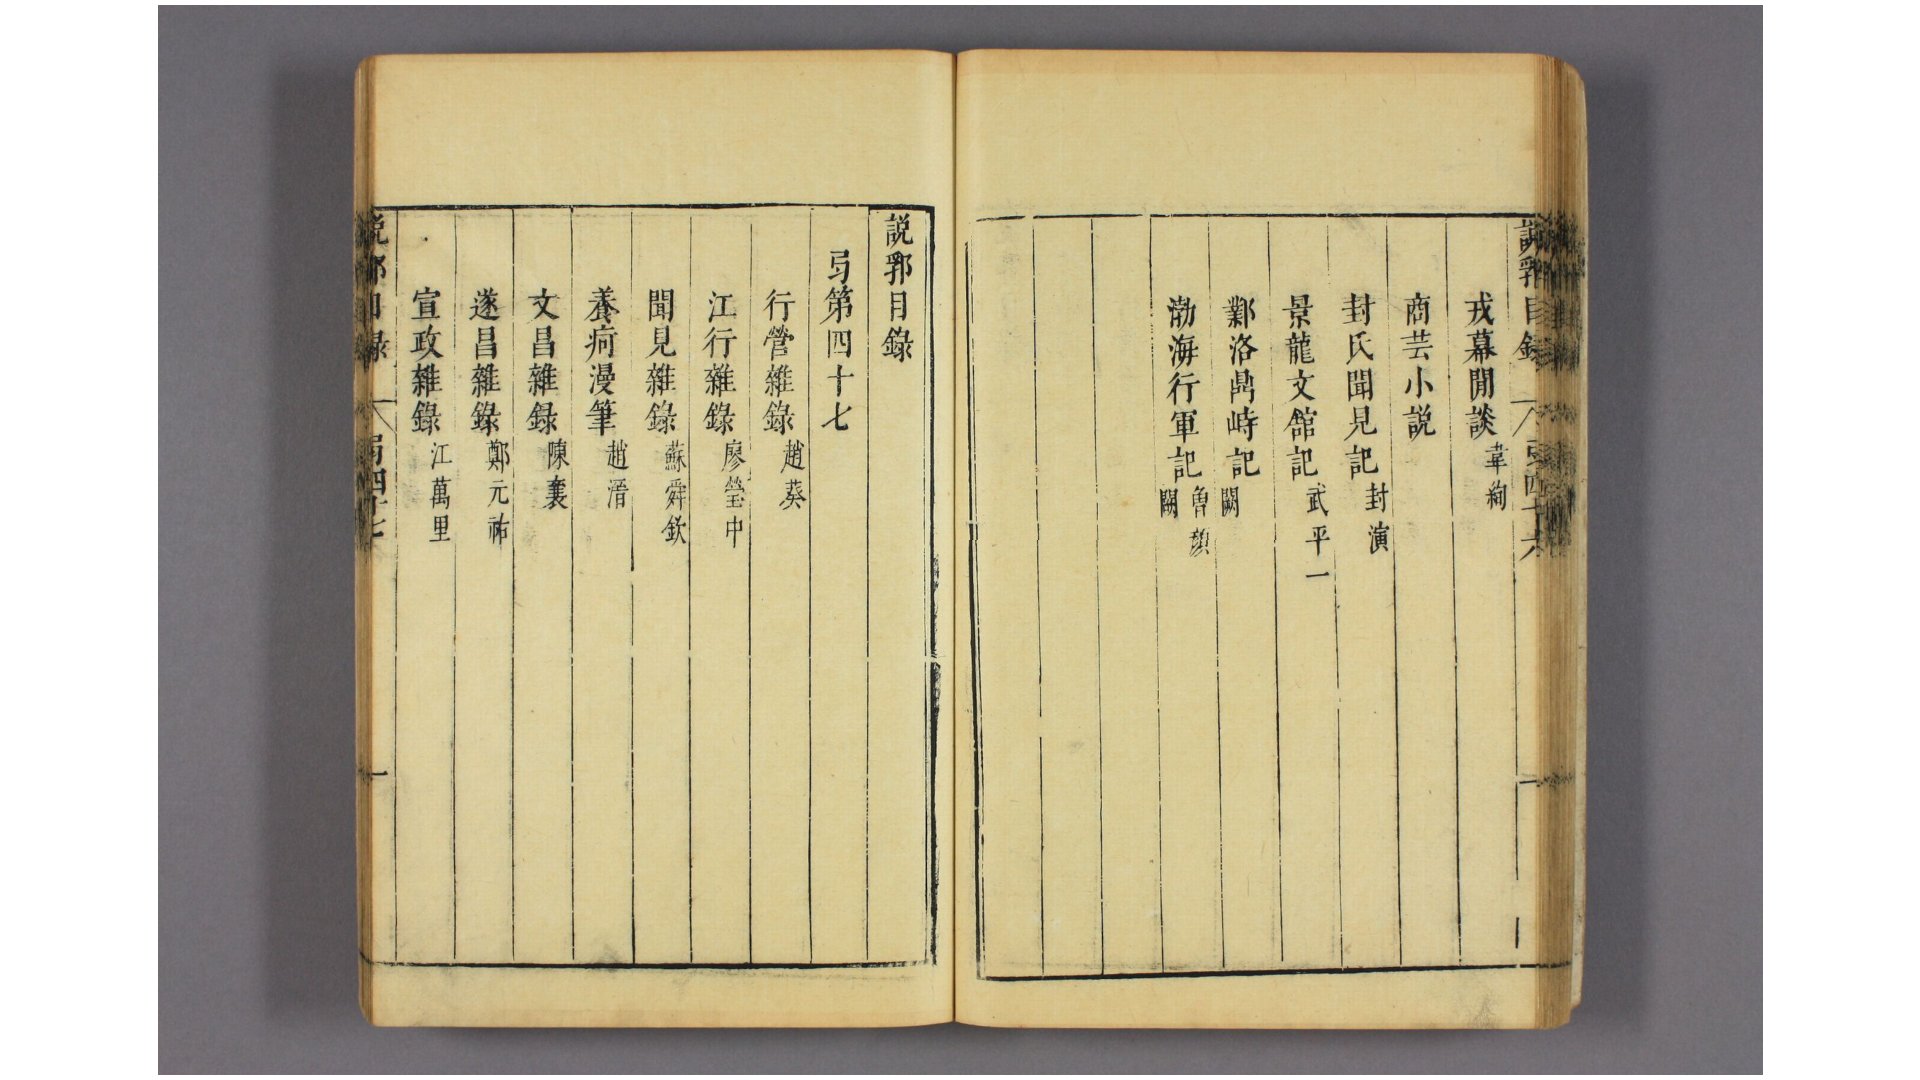 說郛目錄 弓四十六
戎幕閒談 韋絢
商芸小説
封氏聞見記 封演
景龍文館記 武平一
鄴洛鼎峙記 闕
渤海行軍記 魯顏 闕
説郛目錄
弓第四十七
行營雜錄 趙葵
江行雜錄 廖瑩中
聞見雜錄 蘇舜欽
養疴漫筆 趙溍
文昌雜録 陳襄
遂昌雜錄 鄭元祐
宣政雜錄 江萬里
説郛目錄 弓四十七 一